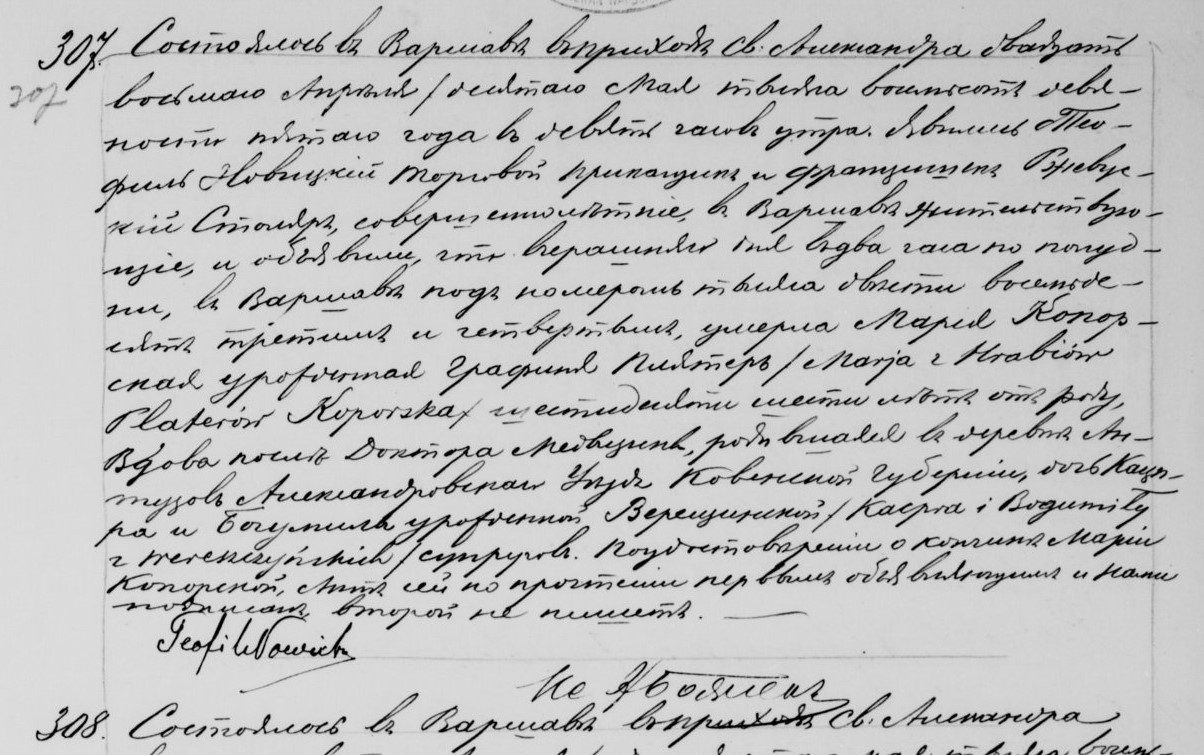 307. Состоялось въ Варшавѣ въ приходѣ Св. Александра двадцать
307
восьмаго Апрѣля / десятаго Мая тысяча восемьсотъ девя-
ности пятаго года въ девять часовъ утра. Явились Тео-
филь Новицкій торговой прикащикъ и Францишекъ Ржевус-
кій Столяръ, совершеннолѣтніе, въ Варшавѣ жительствую-
щіе, и объявили, что вчерашняго дня въ два часа по полуд-
ни, въ Варшавѣ подъ номеромъ тысяча двѣсти восемьде-
сятъ третьимъ и четвертымъ, умерла Марія Копор-
ская урожденная Графиня Плятеръ / Marja z Hrabiów
Platerów Koporska / шестидесяти шести лѣтъ отъ роду,
Вдова послѣ Доктора Медицины, родившаяся въ деревнѣ Ан-
тузовъ Александровскаго Уѣзда Ковенской Губерніи, дочь Каци-
ра и Богумилы урожденной Верещинской / Kacpra i Bogumiły
z Wereszczyńskich / супруговъ. По удостовѣреніи о кончинѣ Маріи
Копорской, Актъ сей по прочтеніи первымъ объявляющимъ и нами
подписанъ второй не пишетъ.
Teofil Nowicki
308. Состоялось въ Варшавѣ въ приходѣ Св. Александра